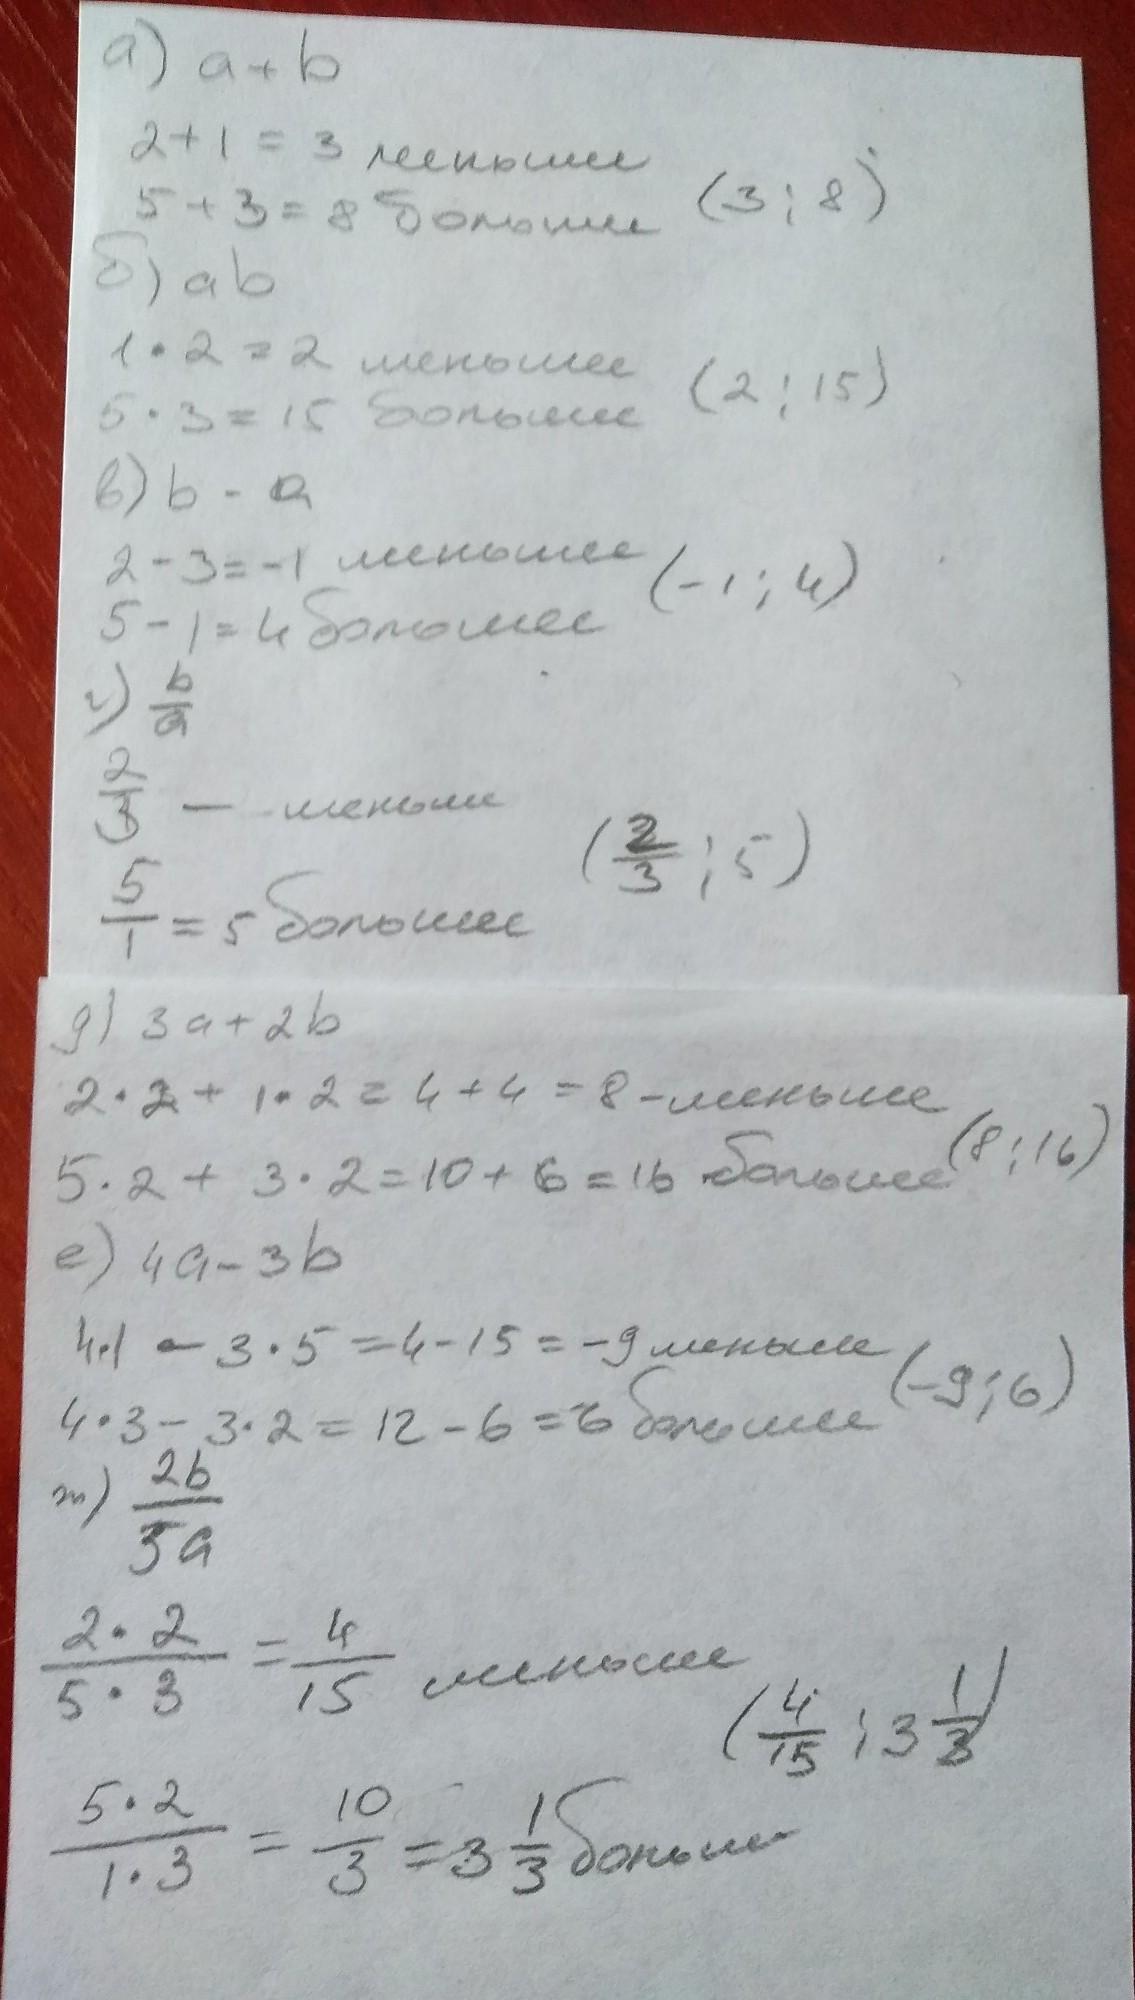 а) a + b
2 + 1 = 3 меньше
5 + 3 = 8 больше (3; 8)
б) ab
1 · 2 = 2 меньшее
5 · 3 = 15 больше (2; 15)
в) b - a
2 - 3 = -1 меньшее
5 - 1 = 4 большее (-1; 4)
г) b/a
2/3 — меньше
5/1 = 5 большее (2/3; 5)
д) 3a + 2b
2 · 2 + 1 · 2 = 4 + 4 = 8 - меньше
5 · 2 + 3 · 2 = 10 + 6 = 16 большее (8; 16)
е) 4a - 3b
4·1 - 3 · 5 = 4 - 15 = -9 меньше
4 · 3 - 3 · 2 = 12 - 6 = 6 большее (-9; 6)
ж) 2b/5a
2 · 2/5 · 3 = 4/15 меньше
(4/15; 3 1/3)
5 · 2/1 · 3 = 10/3 = 3 1/3 больше